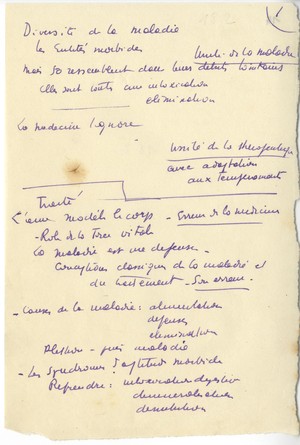 1
Diversité de la maladie
les Entités morbides
Unité de la maladie
mais se ressemblent dans leurs débuts lointains
Elles sont toutes une intoxication
élimination
La médecine l'ignore
Unité de la thérapeutique
avec adaptation
aux tempéraments
Traité
L'âme modèle le corps - Erreur de la médecine
- Rôle de la Force vitale
La maladie est une défense -
Conceptions classiques de la maladie et
du traitement - Son erreur.
- Causes de la maladie : alimentation
défenses
élimination
- puis maladie
- Les Syndromes d'aptitude morbide
Reprendre : intoxication digestive
déminéralisation
dénutrition